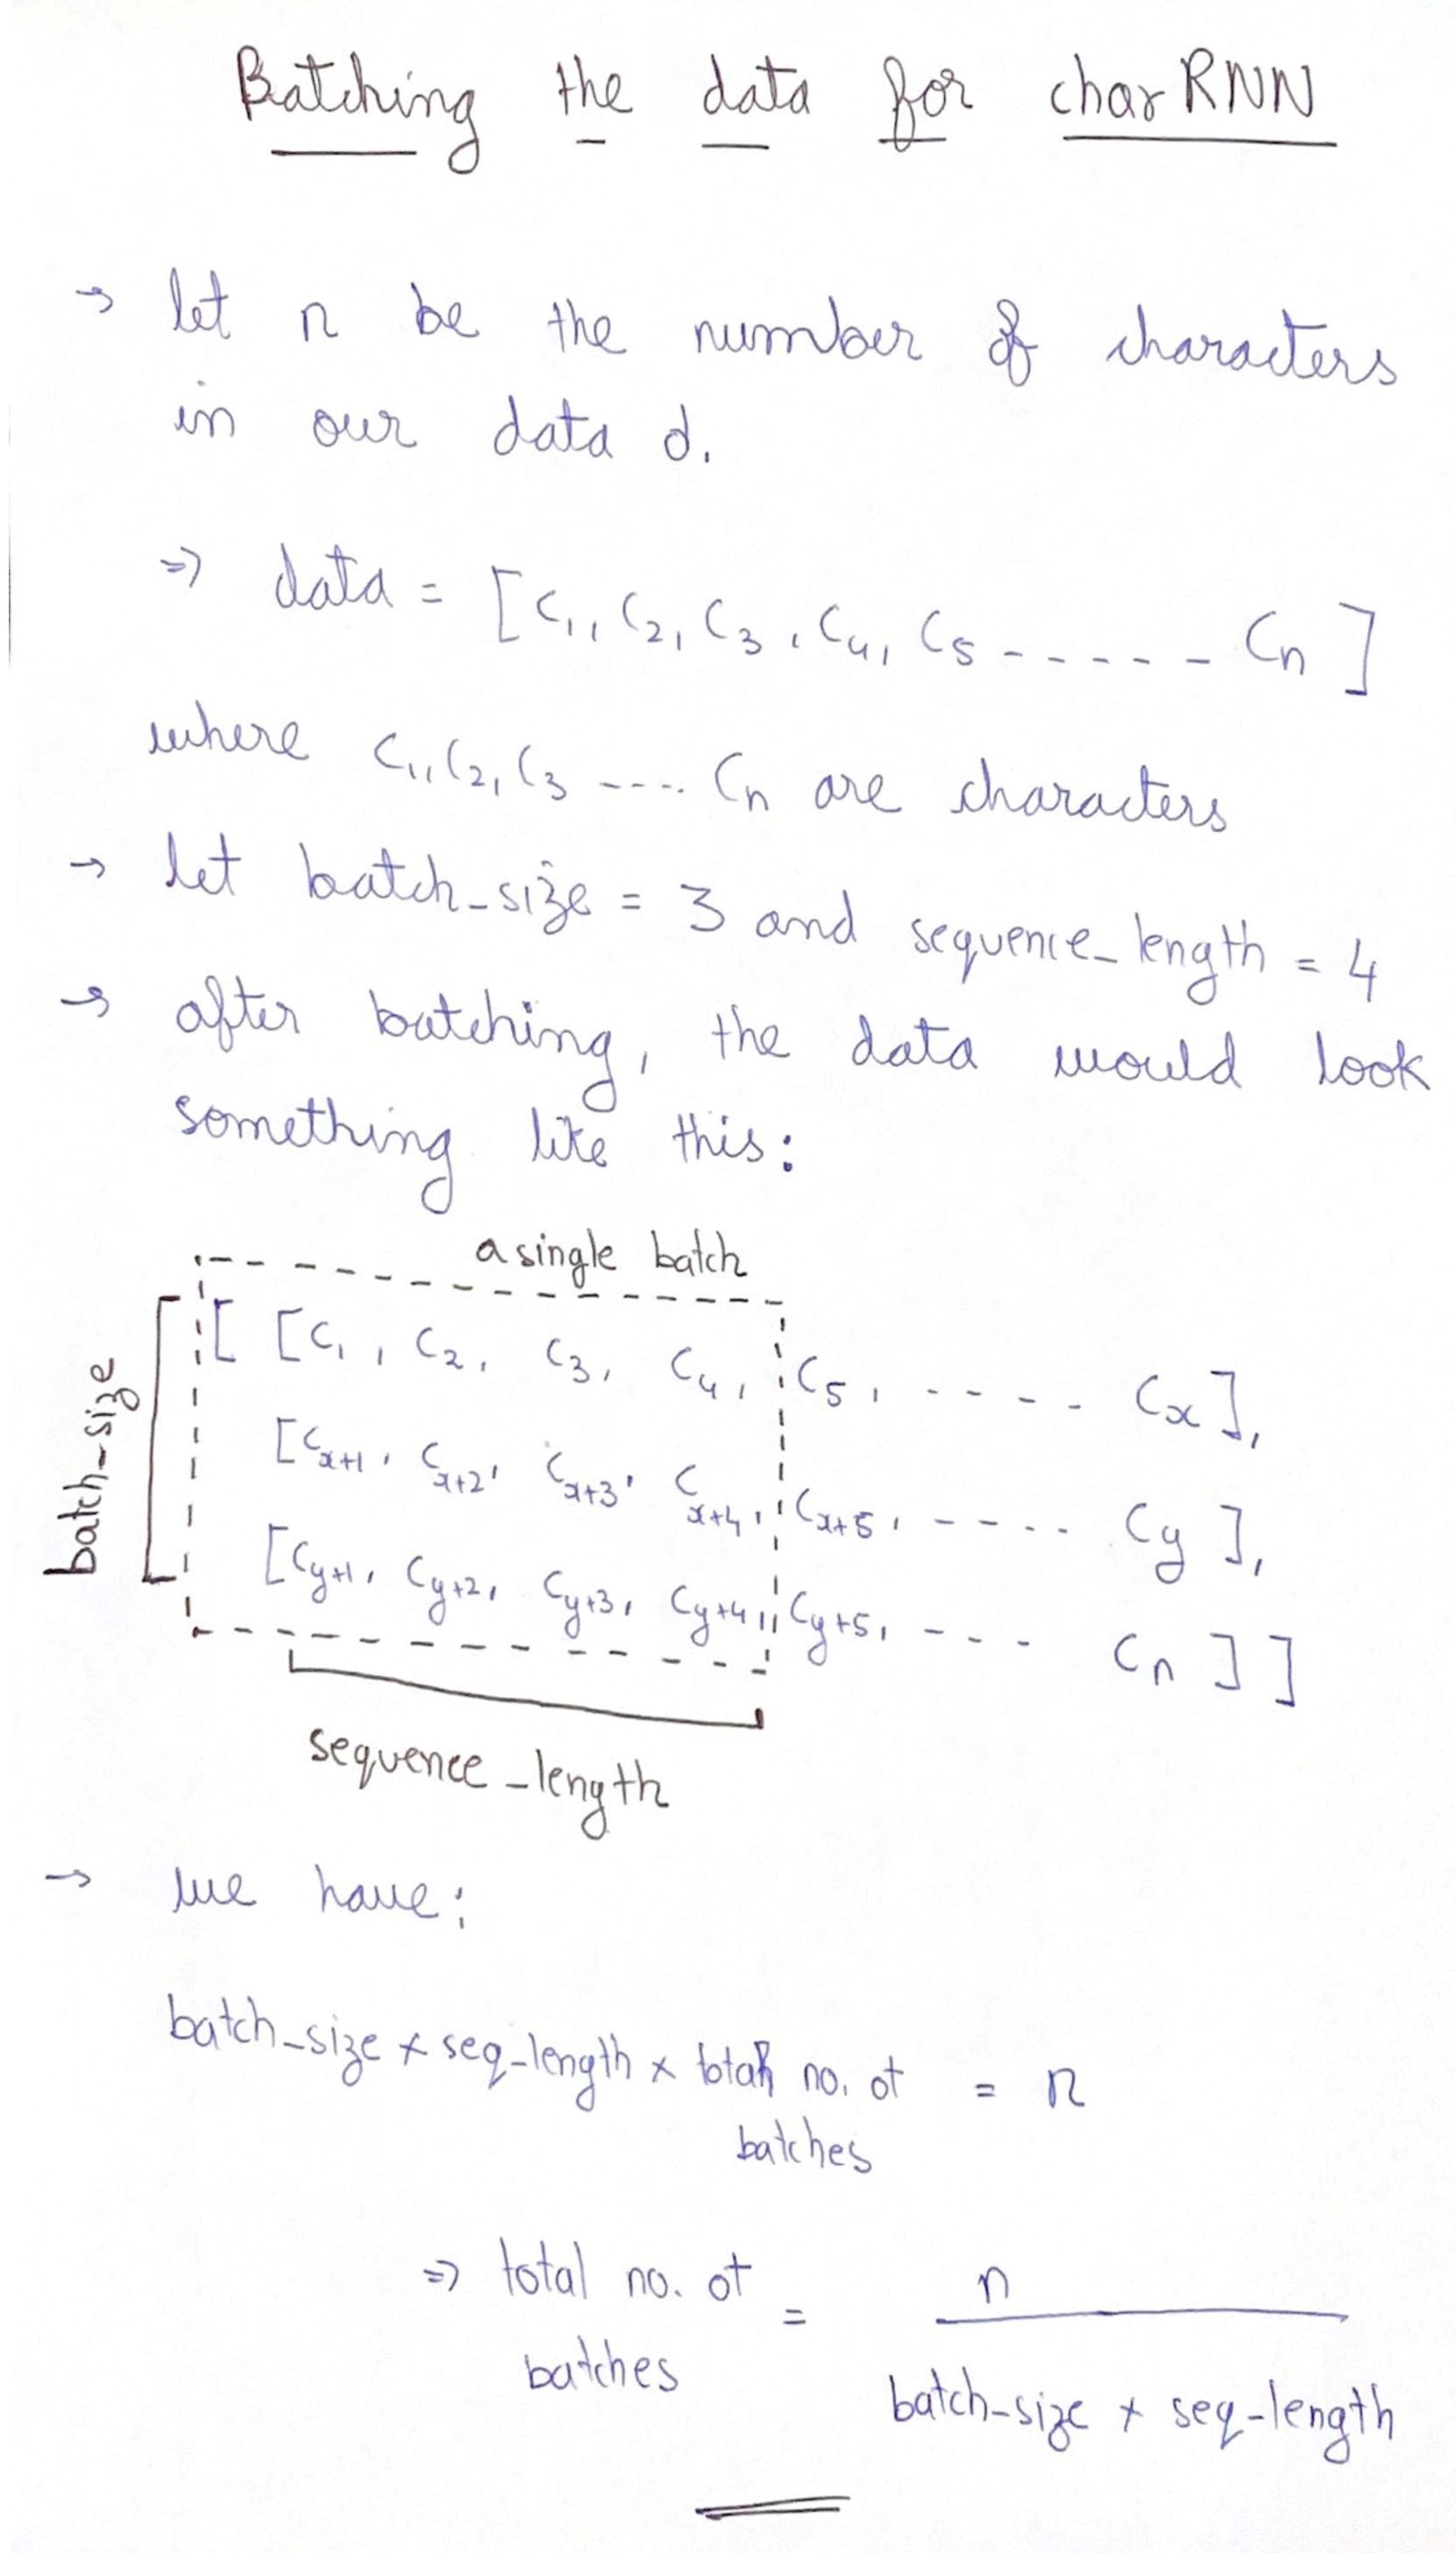 Batching the data for charRNN
→ let n be the number of characters
in our data d.
⇒ data = [C₁, C₂, C₃, C₄, C₅ ----- Cₙ]
where C₁, C₂, C₃ ---- Cₙ are characters
→ let batch_size = 3 and sequence_length = 4
→ after batching, the data would look
something like this:
a single batch
batch_size
[ [C₁, C₂, C₃, C₄, C₅, ---- Cₓ],
[Cₓ₊₁, Cₓ₊₂, Cₓ₊₃, Cₓ₊₄, Cₓ₊₅, ---- Cy],
[Cy+1, Cy+2, Cy+3, Cy+4, Cy+5, --- Cₙ] ]
sequence_length
→ we have:
batch_size × seq_length × total no. of = n
batches
⇒ total no. of = n
batches
batch_size × seq_length